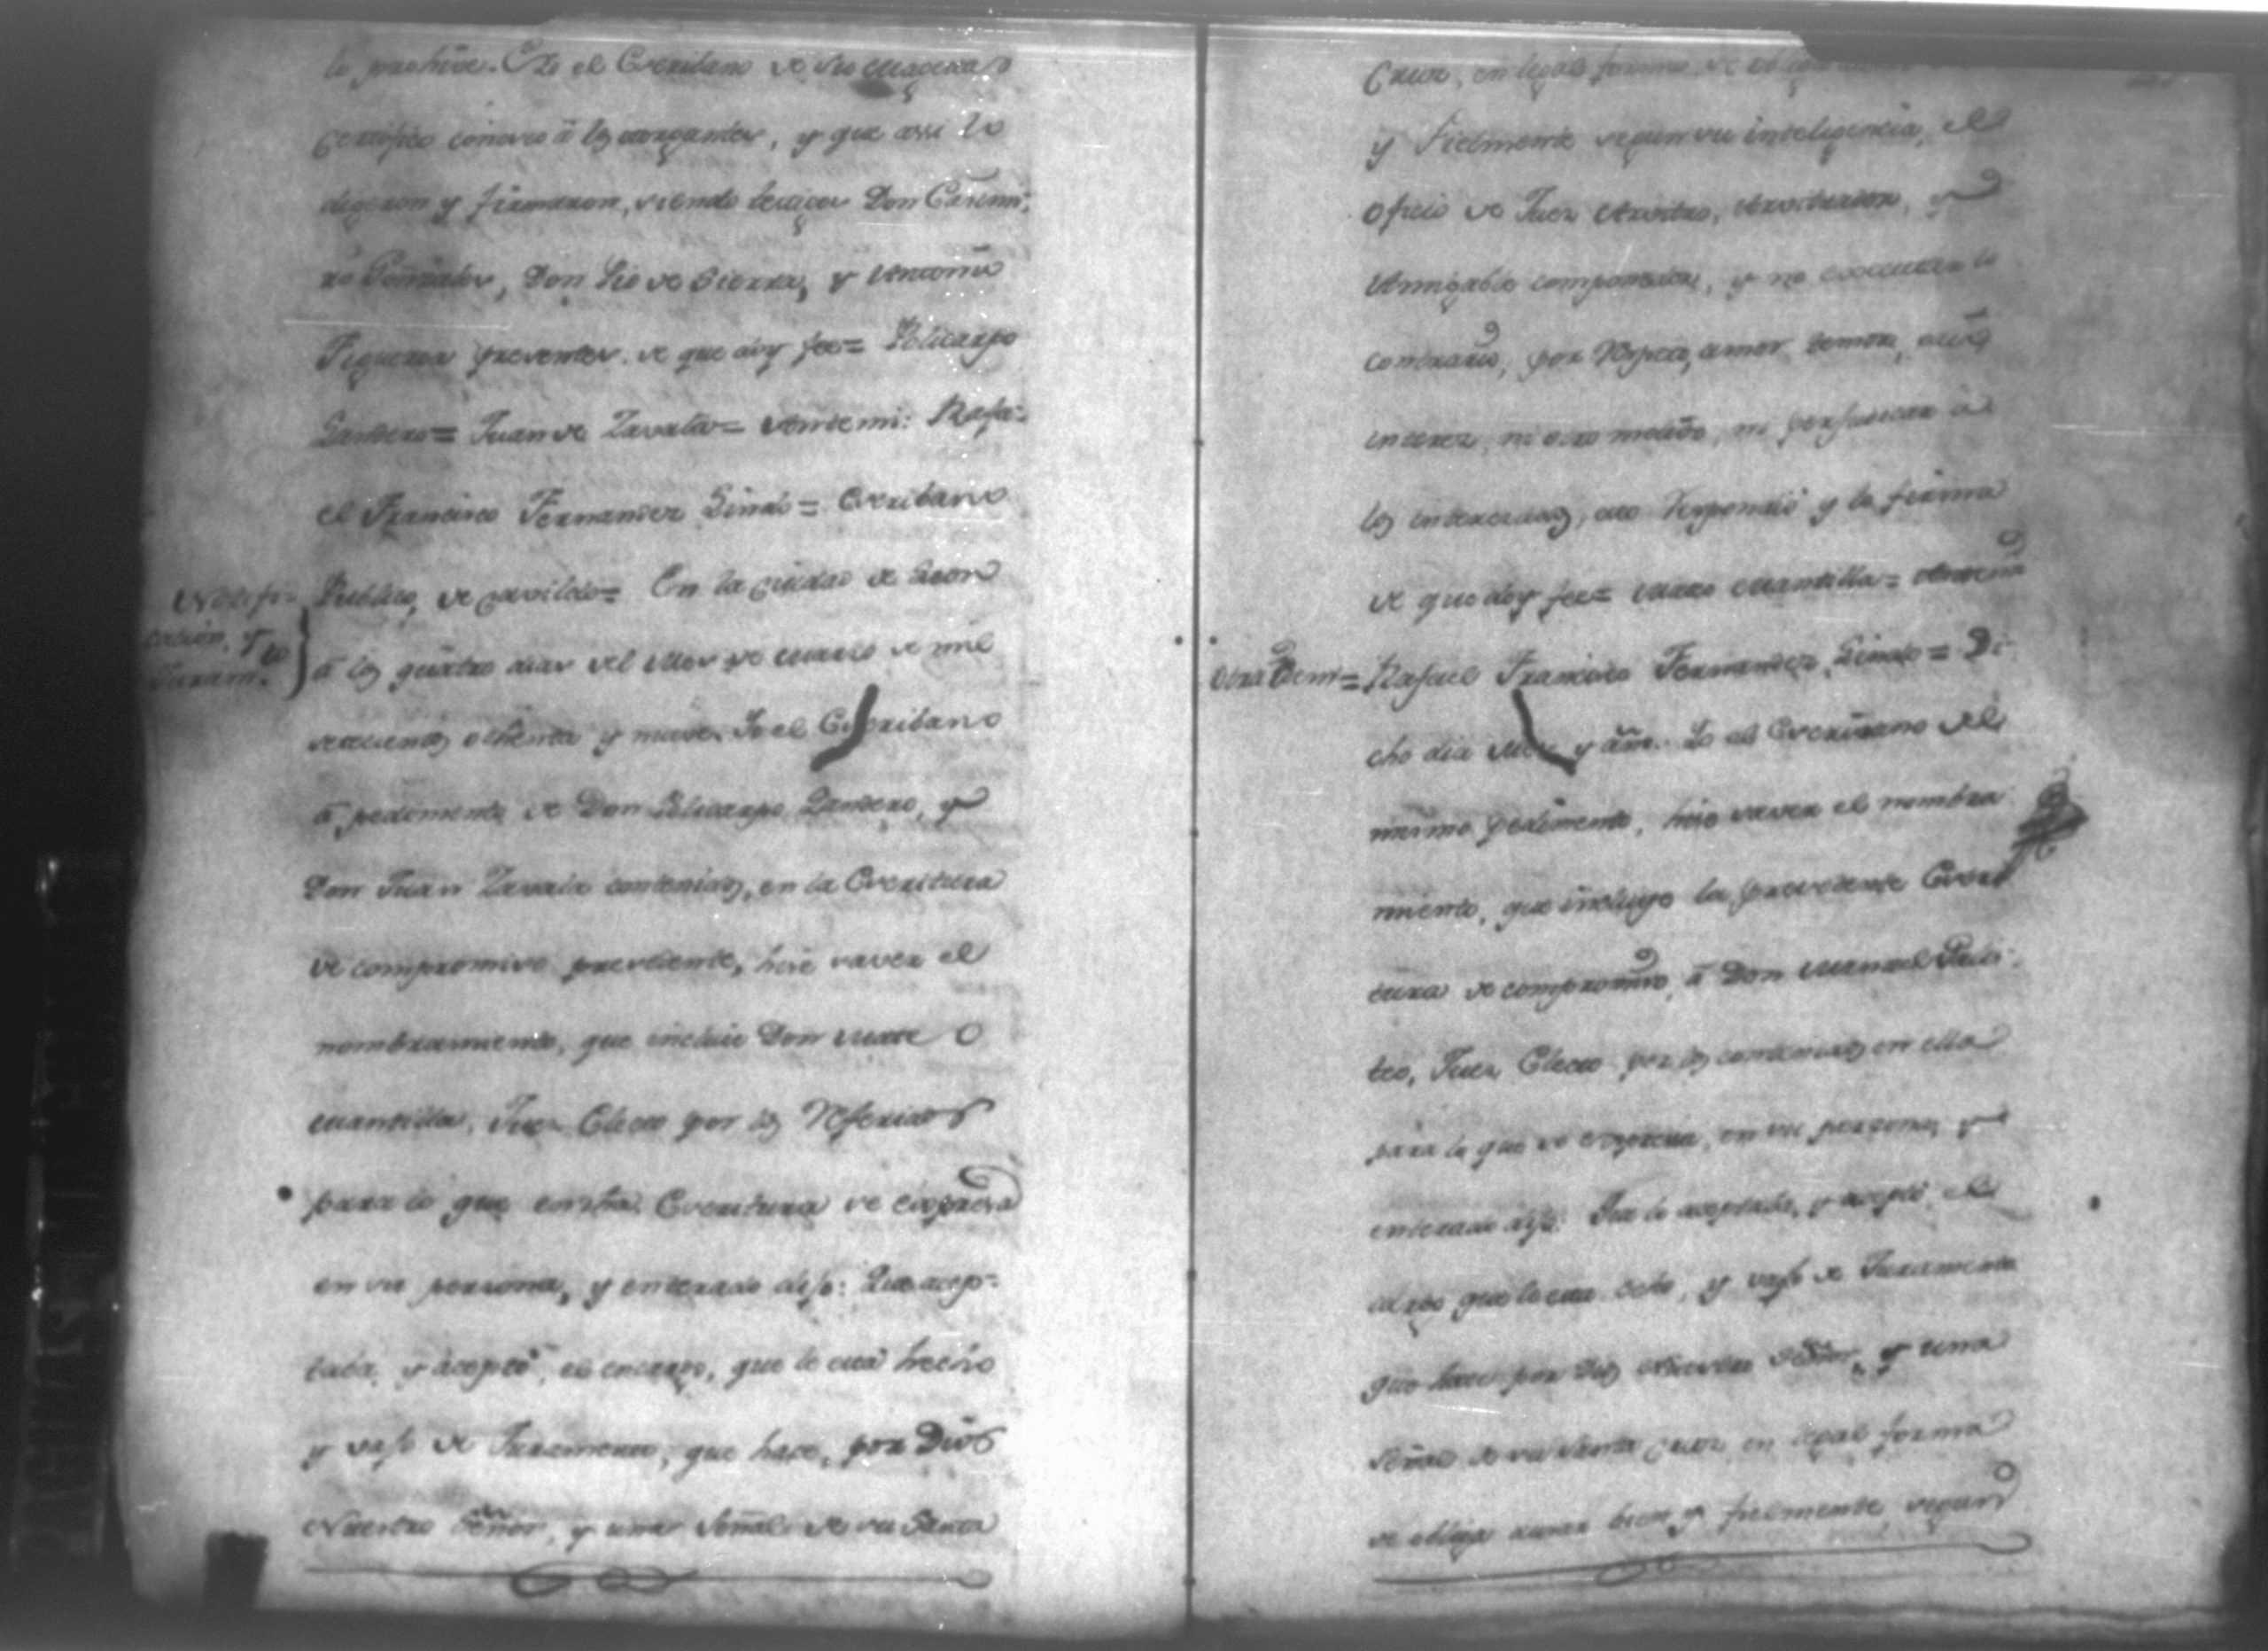 lo prohive. Yo el Escribano de Su Magestad
Certifico conosco â los otorgantes, y que assi lo
digeron y firmaron, siendo testigos Don Casimi-
ro Gonzales, Don Pio de Sierra, y Antonio
Figueroa presentes. de que doy fee= Policarpo
Landero= Juan de Zavala= Antemi: Rafa-
el Francisco Fernandez Lindo= Escribano
Notifi-
cación, y
Juram.to
Publico, de Cavildo= En la Ciudad de Leon
â los quatro dias del Mes de Marzo de mil
setecientos ochenta y nueve. Yo el Escribano
â pedimento de Don Policarpo Landero, y
Don Juan Zavala contenidos, en la Escritura
de compromiso precedente, hize saver el
nombramiento, que incluie Don Mateo
Mantilla, Juez Electo por los Referidos
para lo que en dicha Escritura se expresa
en su persona, y enterado dijo: Que acep-
taba, y aceptó, el encargo, que le está hecho
y vajo de Juramento, que hace, por Dios
Nuestro Señor, y una Señal de su Santa
Cruz, en legal forma se obliga
y Fielmente segun su inteligencia, el
Oficio de Juez Arvitro, Arvitrador, y
Amigable componedor, y no executar lo
contrario, por Respeto, amor temor,
interes, ni otro motivo, ni perjudicar â
los interesados, esto Respondió y lo firma
de que doy fee= Mateo Mantilla= Antemi
Otra Ydem=
Rafael Francisco Fernandez Lindo= Di-
cho dia Mes y año. Yo el Escribano del
mismo pedimento, hize saver el nombra
miento, que incluye la precedente Escri
tura de compromiso, â Don Manuel
teo, Juez Electo por los contenidos en ella
para lo que se expresa, en su persona, y
enterado dijo: Que lo aceptaba, y aceptó el
cargo que le esta echo, y vajo de Juramento
que hace por Dios Nuestro Señor, y una
Señal de su Santa Cruz, en legal forma
se obliga usar bien y fielmente segun